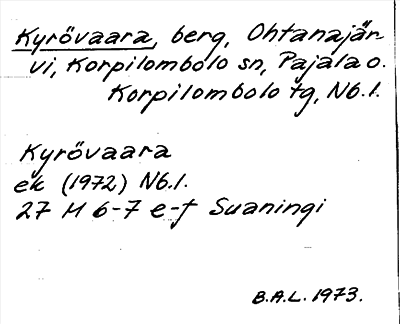 Kyrövaara, berg, Ohtanajär-
vi, Korpilombolo sn, Pajala o.
Korpilombolo tg, Nb.l.
Kyrövaara
ek (1972) Nb.l.
27 M 6-7 e-f Suaningi
B.A.L. 1973.